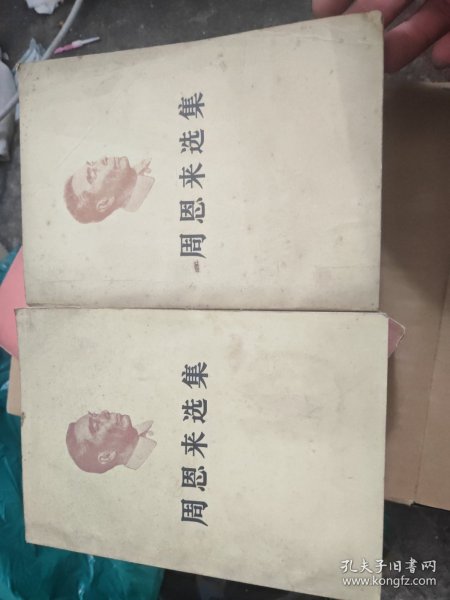 周恩来选集
周恩来选集
孔夫子旧书网
www.kongfz.com